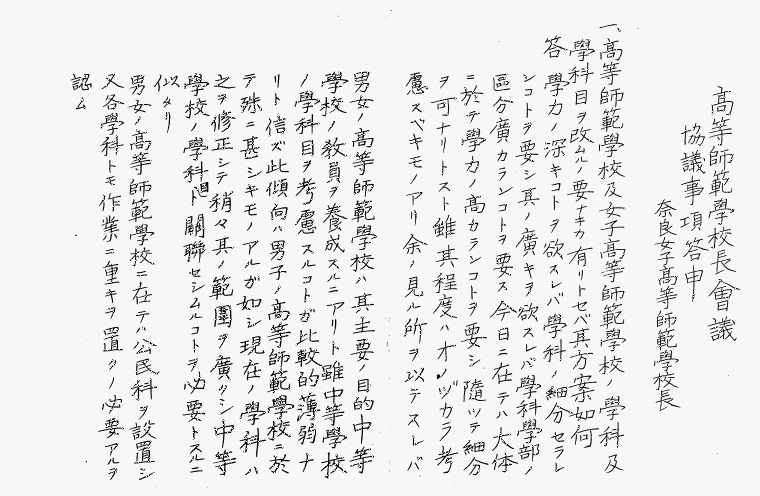 高等師範學校長會議
協議事項答申
奈良女子高等師範學校長
一、高等師範學校及女子高等師範學校ノ學科及
學科目ヲ改ムルノ要ナキカ有リトセバ其方案如何
答 學力ノ深キコトヲ欲スレバ學科ノ細分セラレ
ンコトヲ要シ其ノ廣キヲ欲スレバ學科學部ノ
區分廣カランコトヲ要ス今日ニ在テハ大体
ニ於テ學力ノ高カランコトヲ要シ隨ツテ細分
ヲ可ナリトスト雖其程度ハオノヅカラ考
慮スベキモノアリ余ノ見ル所ヲ以テスレバ
男女ノ高等師範學校ハ其主要ノ目的中等
學校ノ教員ヲ養成スルニアリト雖中等學校
ノ學科目ヲ考慮スルコトガ比較的薄弱ナ
リト信ズ此傾向ハ男子ノ高等師範學校ニ於
テ殊ニ甚シキモノアルガ如シ現在ノ學科ハ
之ヲ修正シテ稍々其ノ範圍ヲ廣クシ中等
學校ノ學科目ト關聯セシムルコトヲ必要トスルニ
似タリ
男女ノ高等師範學校ニ在テハ公民科ヲ設置シ
又各學科トモ作業ニ重キヲ置クノ必要アルヲ
認ム